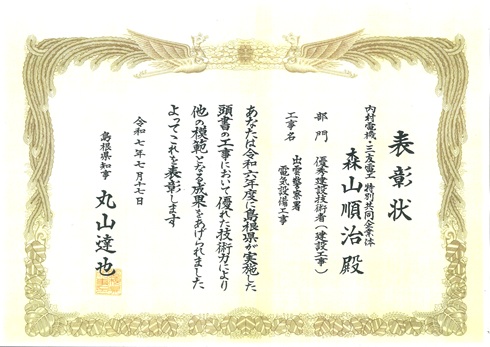 表彰状
内村電機・三友電工 特別共同企業体
森山順治殿
部門 優秀建設技術者(建設工事)
工事名 出雲警察署
電気設備工事
あなたは令和六年度に島根県が実施した
頭書の工事において優れた技術力により
他の模範となる成果をあげられました
よってこれを表彰します
令和七年七月十七日
島根県知事 丸山達也